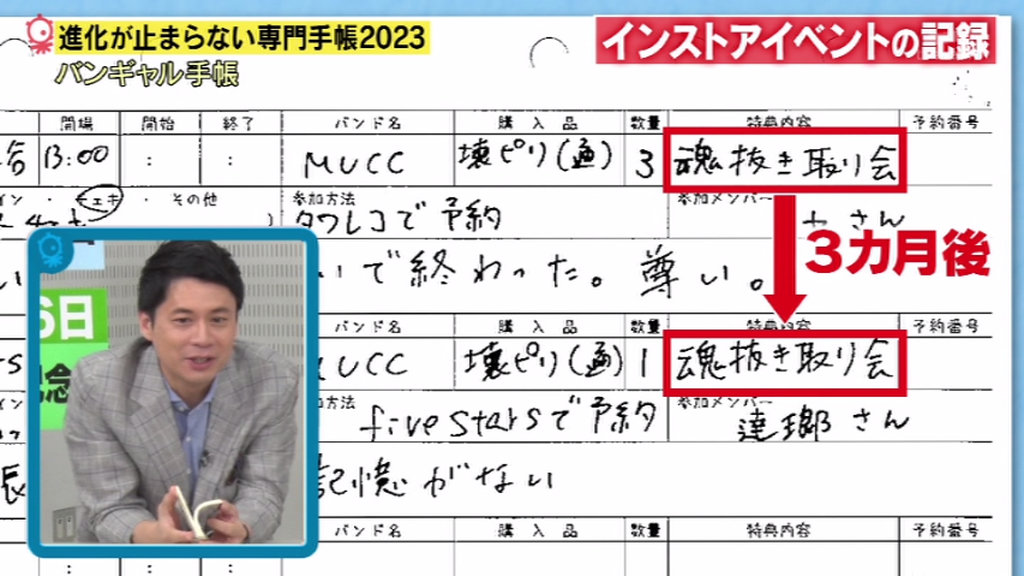 進化が止まらない専門手帳2023
バンギャル手帳
インストアイベントの記録
開場 開始 終了 バンド名 購入品 数量 特典内容 予約番号
13:00 : : MUCC 壊ピリ(通) 3 魂抜き取り会
イン・チェキ・その他 参加方法 参加メンバー
タワレコで予約 さん
3カ月後
いで終わった。尊い。
6日
バンド名 購入品 数量 特典内容 予約番号
MUCC 壊ピリ(通) 1 魂抜き取り会
念
イン 方法 参加メンバー
five starsで予約 達瑯さん
記憶がない
バンド名 購入品 数量 特典内容 予約番号
: :